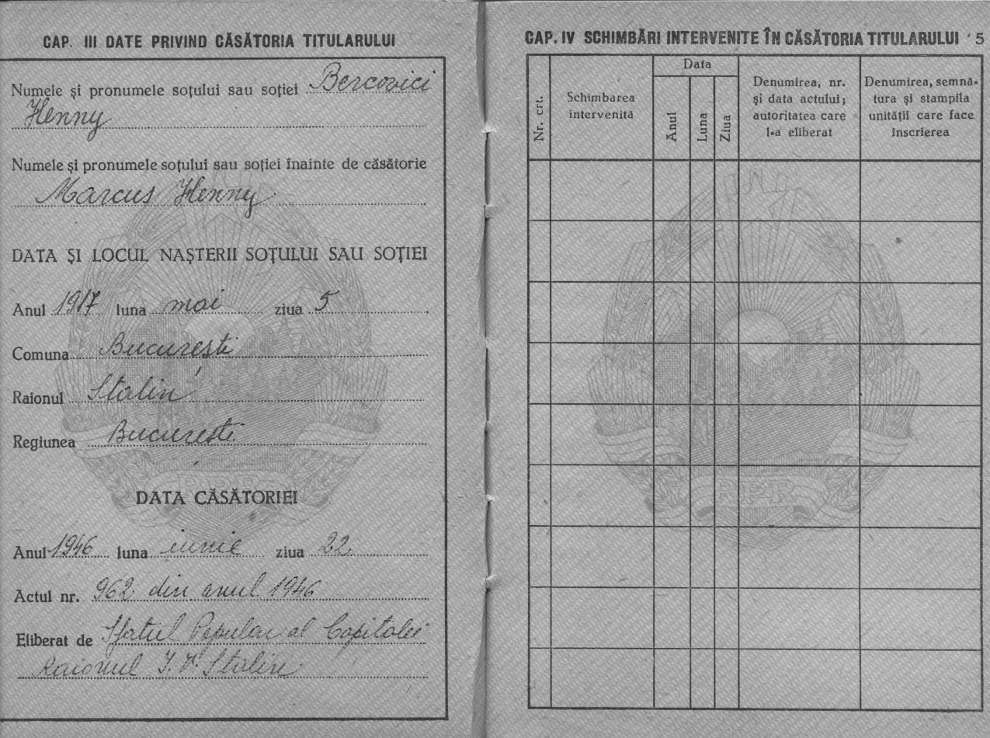 CAP. III DATE PRIVIND CĂSĂTORIA TITULARULUI
Numele și pronumele soțului sau soției Bercovici
Henny
Numele și pronumele soțului sau soției înainte de căsătorie
Marcus Henny
DATA ȘI LOCUL NAȘTERII SOȚULUI SAU SOȚIEI
Anul 1917 luna mai ziua 5
Comuna București
Raionul Stalin
Regiunea București
DATA CĂSĂTORIEI
Anul 1946 luna iunie ziua 22
Actul nr. 962 din anul 1946
Eliberat de Sfatul Popular al Capitalei
Raionul I. V. Stalin
CAP. IV SCHIMBĂRI INTERVENITE ÎN CĂSĂTORIA TITULARULUI 5
Nr. crt.
Schimbarea
intervenită
Data
Anul
Luna
Ziua
Denumirea, nr.
și data actului;
autoritatea care
l-a eliberat
Denumirea, semnă-
tura și stampila
unității care face
înscrierea
RPR
RPR